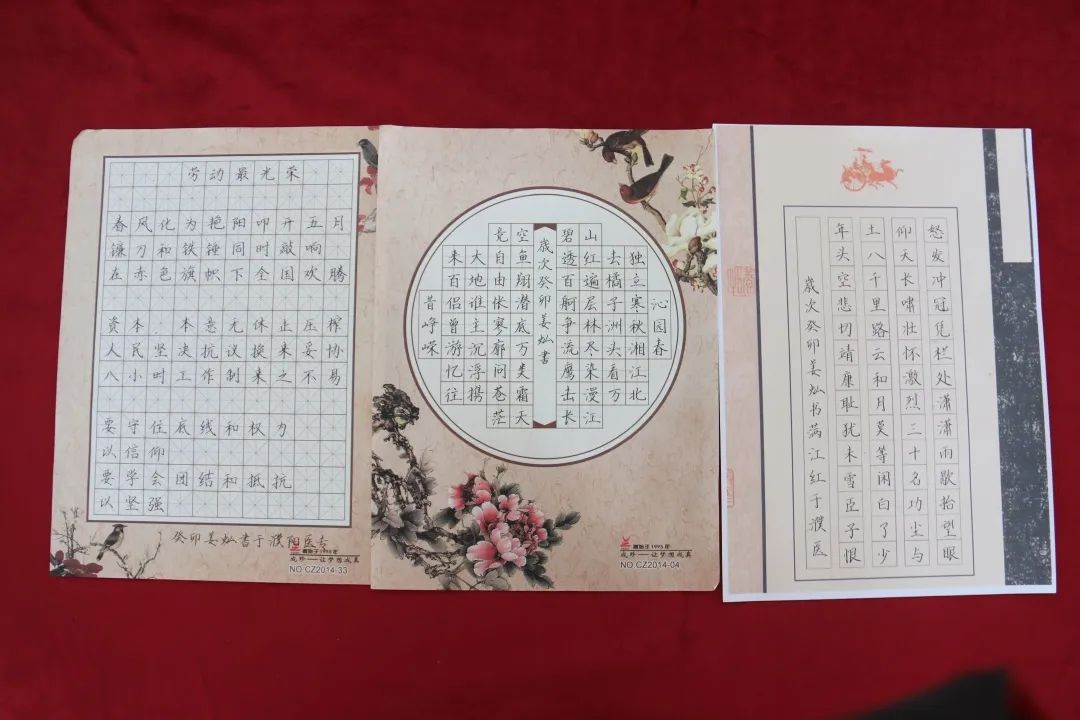 劳动最光荣
春风化为艳阳叩开五月
镰刀和铁锤同时敲响
在赤色旗帜下全国欢腾
资本,本意无休止压榨
人民坚决抗议换来妥协
八小时工作制来之不易
要守住底线和权力
以信仰
要学会团结和抵抗
以坚强
癸卯姜灿书于濮阳医专
创始于1995年
成珍——让梦想成真
NO.CZ2014-33
沁园春
独立寒秋湘江北
去橘子洲头看万
山红遍层林尽染漫江
碧透百舸争流鹰击长
歲次癸卯姜灿书
空鱼翔潜底万类霜天
竞自由怅寥廓问苍茫
大地谁主沉浮携
来百侣曾游忆往
昔峥嵘
创始于1995年
成珍——让梦想成真
NO.CZ2014-04
怒发冲冠凭栏处潇潇雨歇抬望眼
仰天长啸壮怀激烈三十名功尘与
土八千里路云和月莫等闲白了少
年头空悲切靖康耻犹未雪臣子恨
歲次癸卯姜灿书满江红于濮医